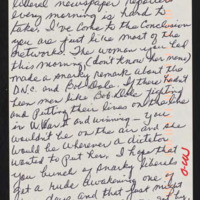 liberal newspaper reporters
every morning is hard to
take, I've come to the conclusion
you are just like most of the
Networks. The woman you had
this morning (don't know her name)
made a snarky remark about the
D.N.C. and Bob Dole. If there hadn't
been men like Bob Dole fighting
and putting their lives on the line
in W. War II and winning - you
wouldn't be on the air and we
would be wherever a dictator
wanted to put her, I hope that
you bunch of snarky liberals
get a rude awakening one of
days and that just might